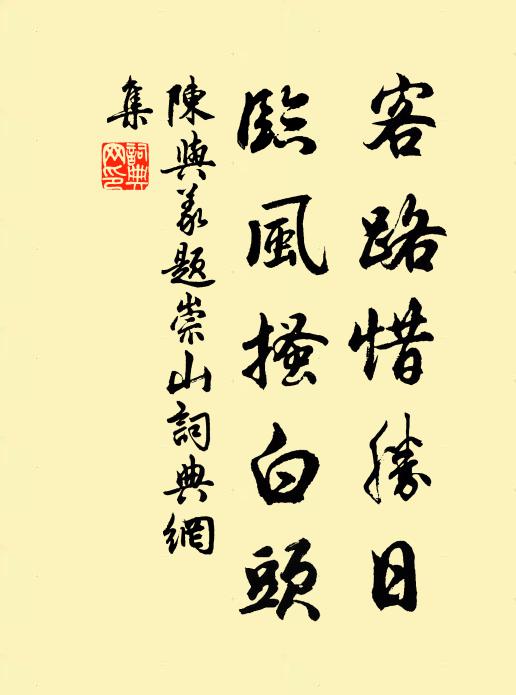 客路惜勝日
臨風搔白頭
陳與義題崇山詞典網
集
詞典
网印